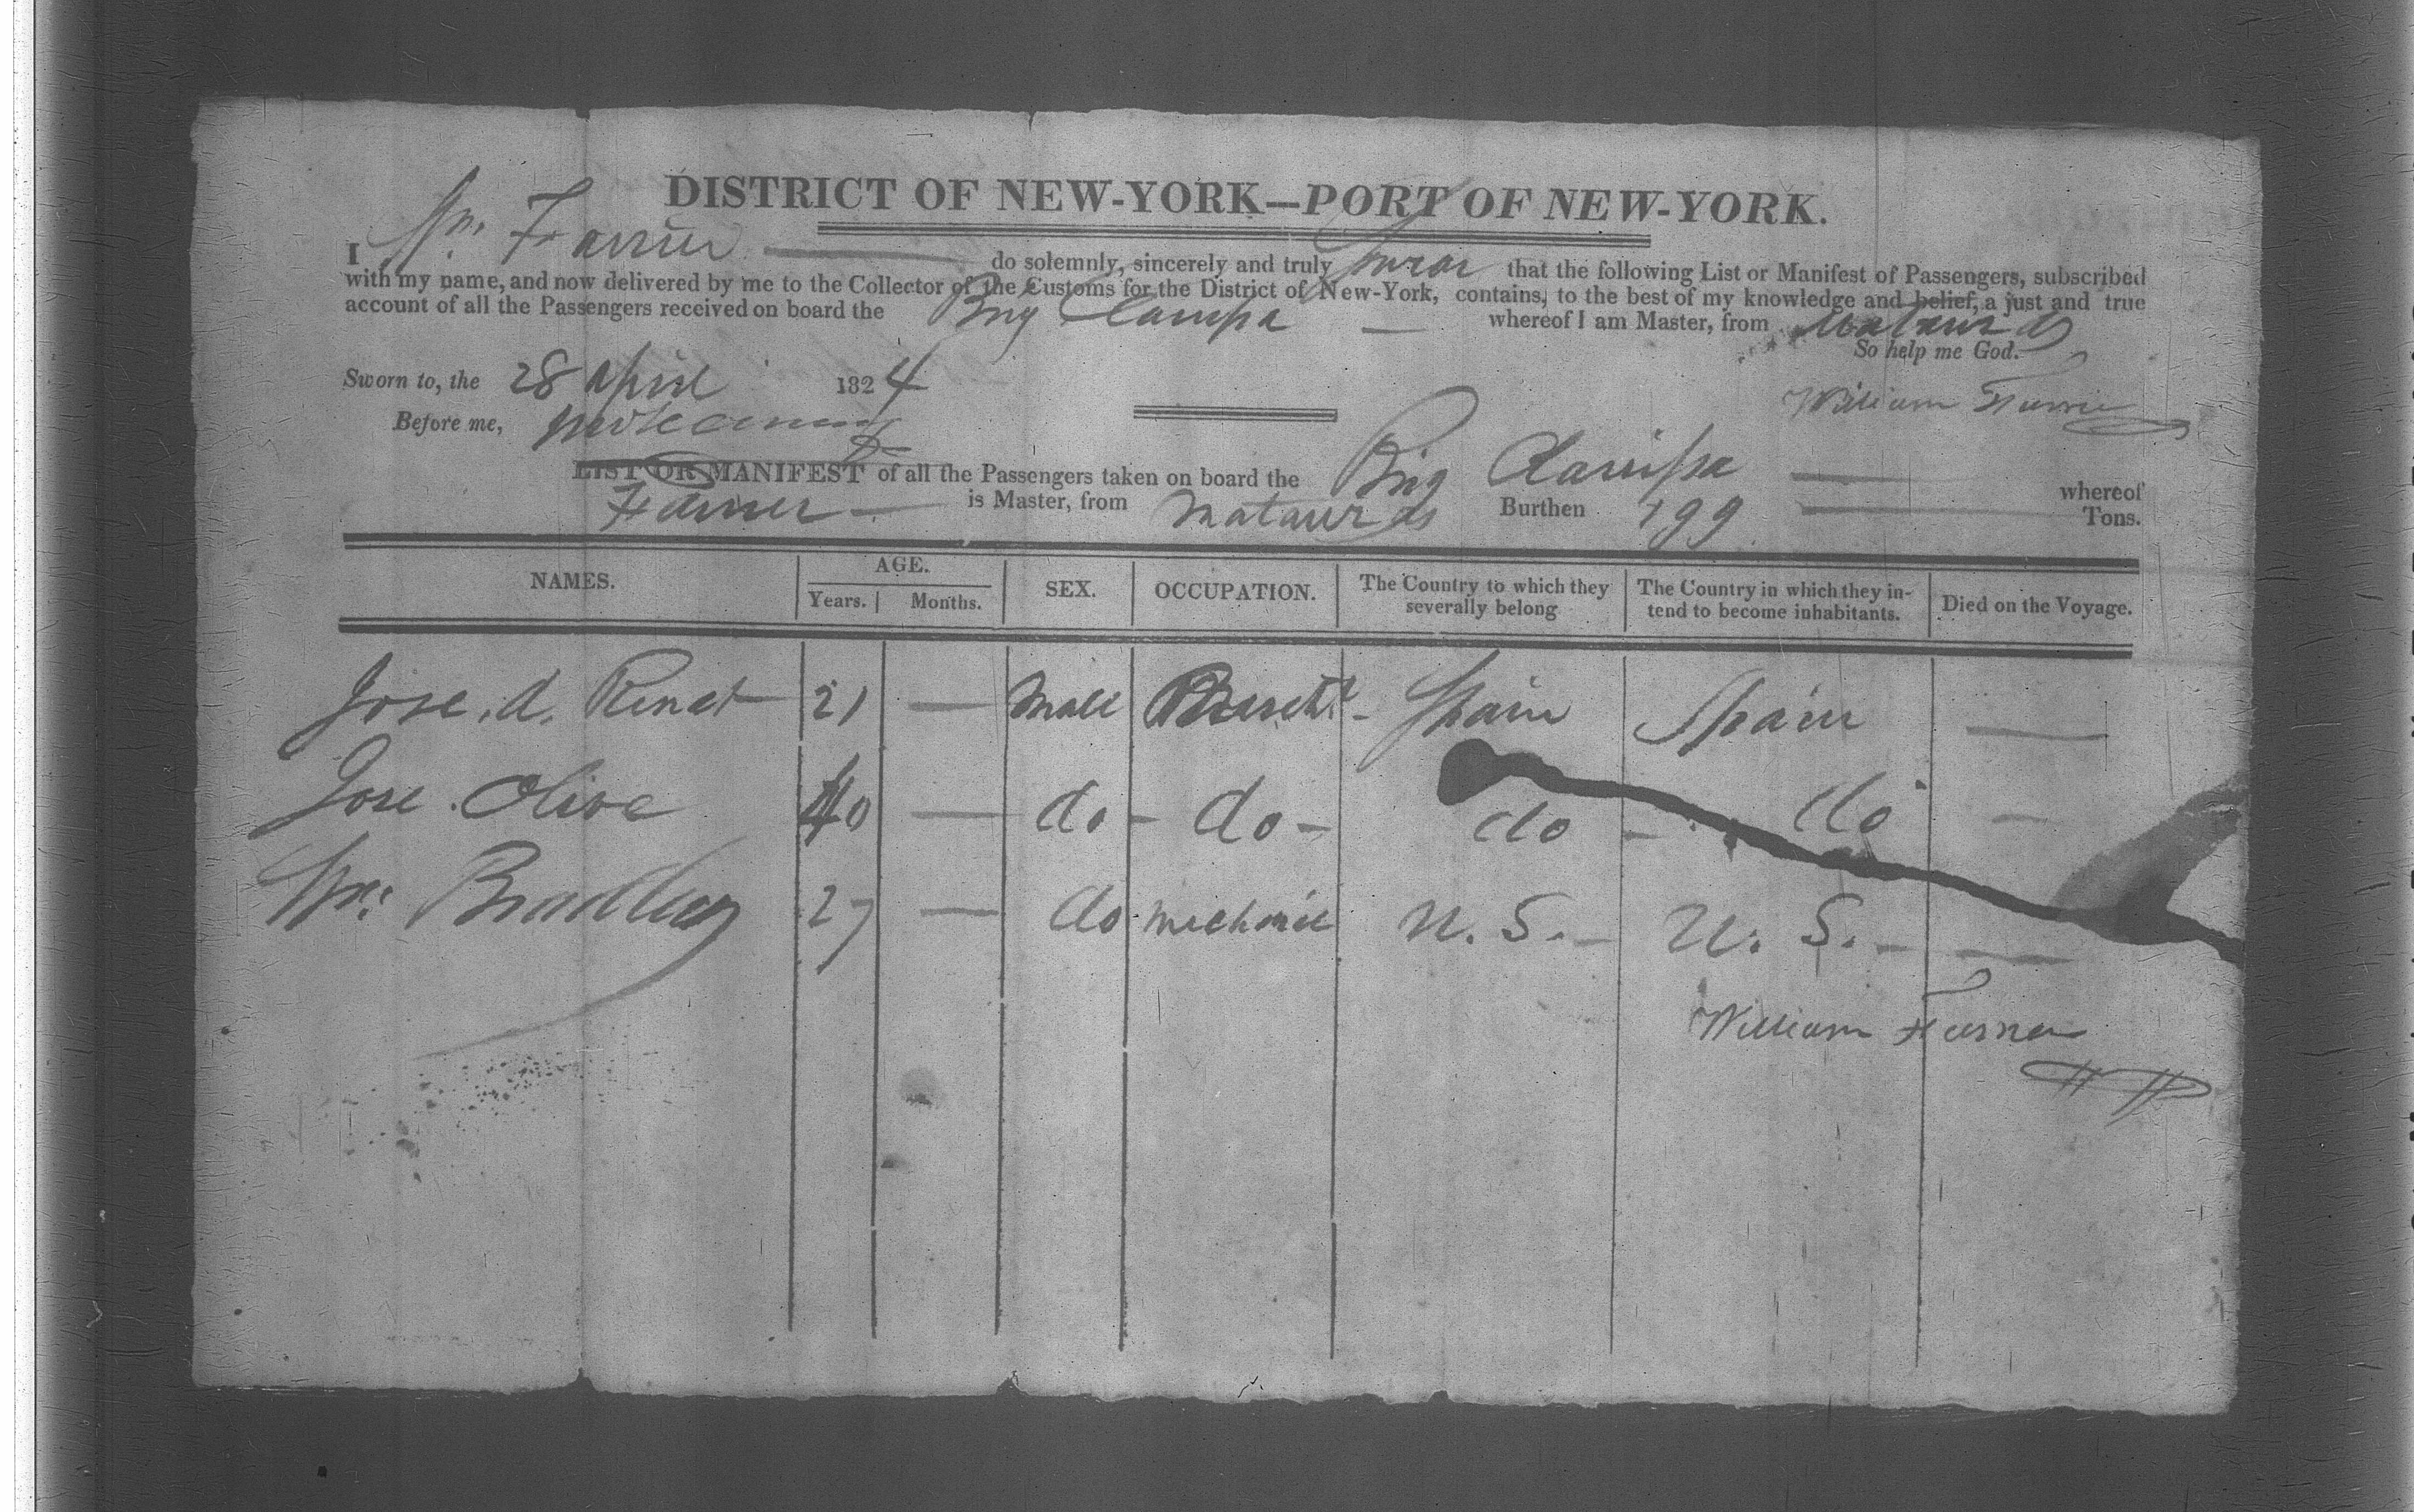 DISTRICT OF NEW-YORK—PORT OF NEW-YORK.
I Wm. Farrier do solemnly, sincerely and truly swear that the following List or Manifest of Passengers, subscribed
with my name, and now delivered by me to the Collector of the Customs for the District of New-York, contains, to the best of my knowledge and belief, a just and true
account of all the Passengers received on board the Brig Clarissa — whereof I am Master, from Matanzas
So help me God.
Sworn to, the 28 April 1824
William
Before me,
LIST OR MANIFEST of all the Passengers taken on board the Brig Clarissa — whereof
is Master, from Matanzas Burthen 199 — Tons.
NAMES. AGE. Years. Months. SEX. OCCUPATION. The Country to which they severally belong The Country in which they intend to become inhabitants. Died on the Voyage.
Jose. A. 21 — Male Spain Spain —
Jose. Olive 40 — do - do - do - do —
Wm: Bradley 27 — do mechanic U. S. - U. S. - —
William